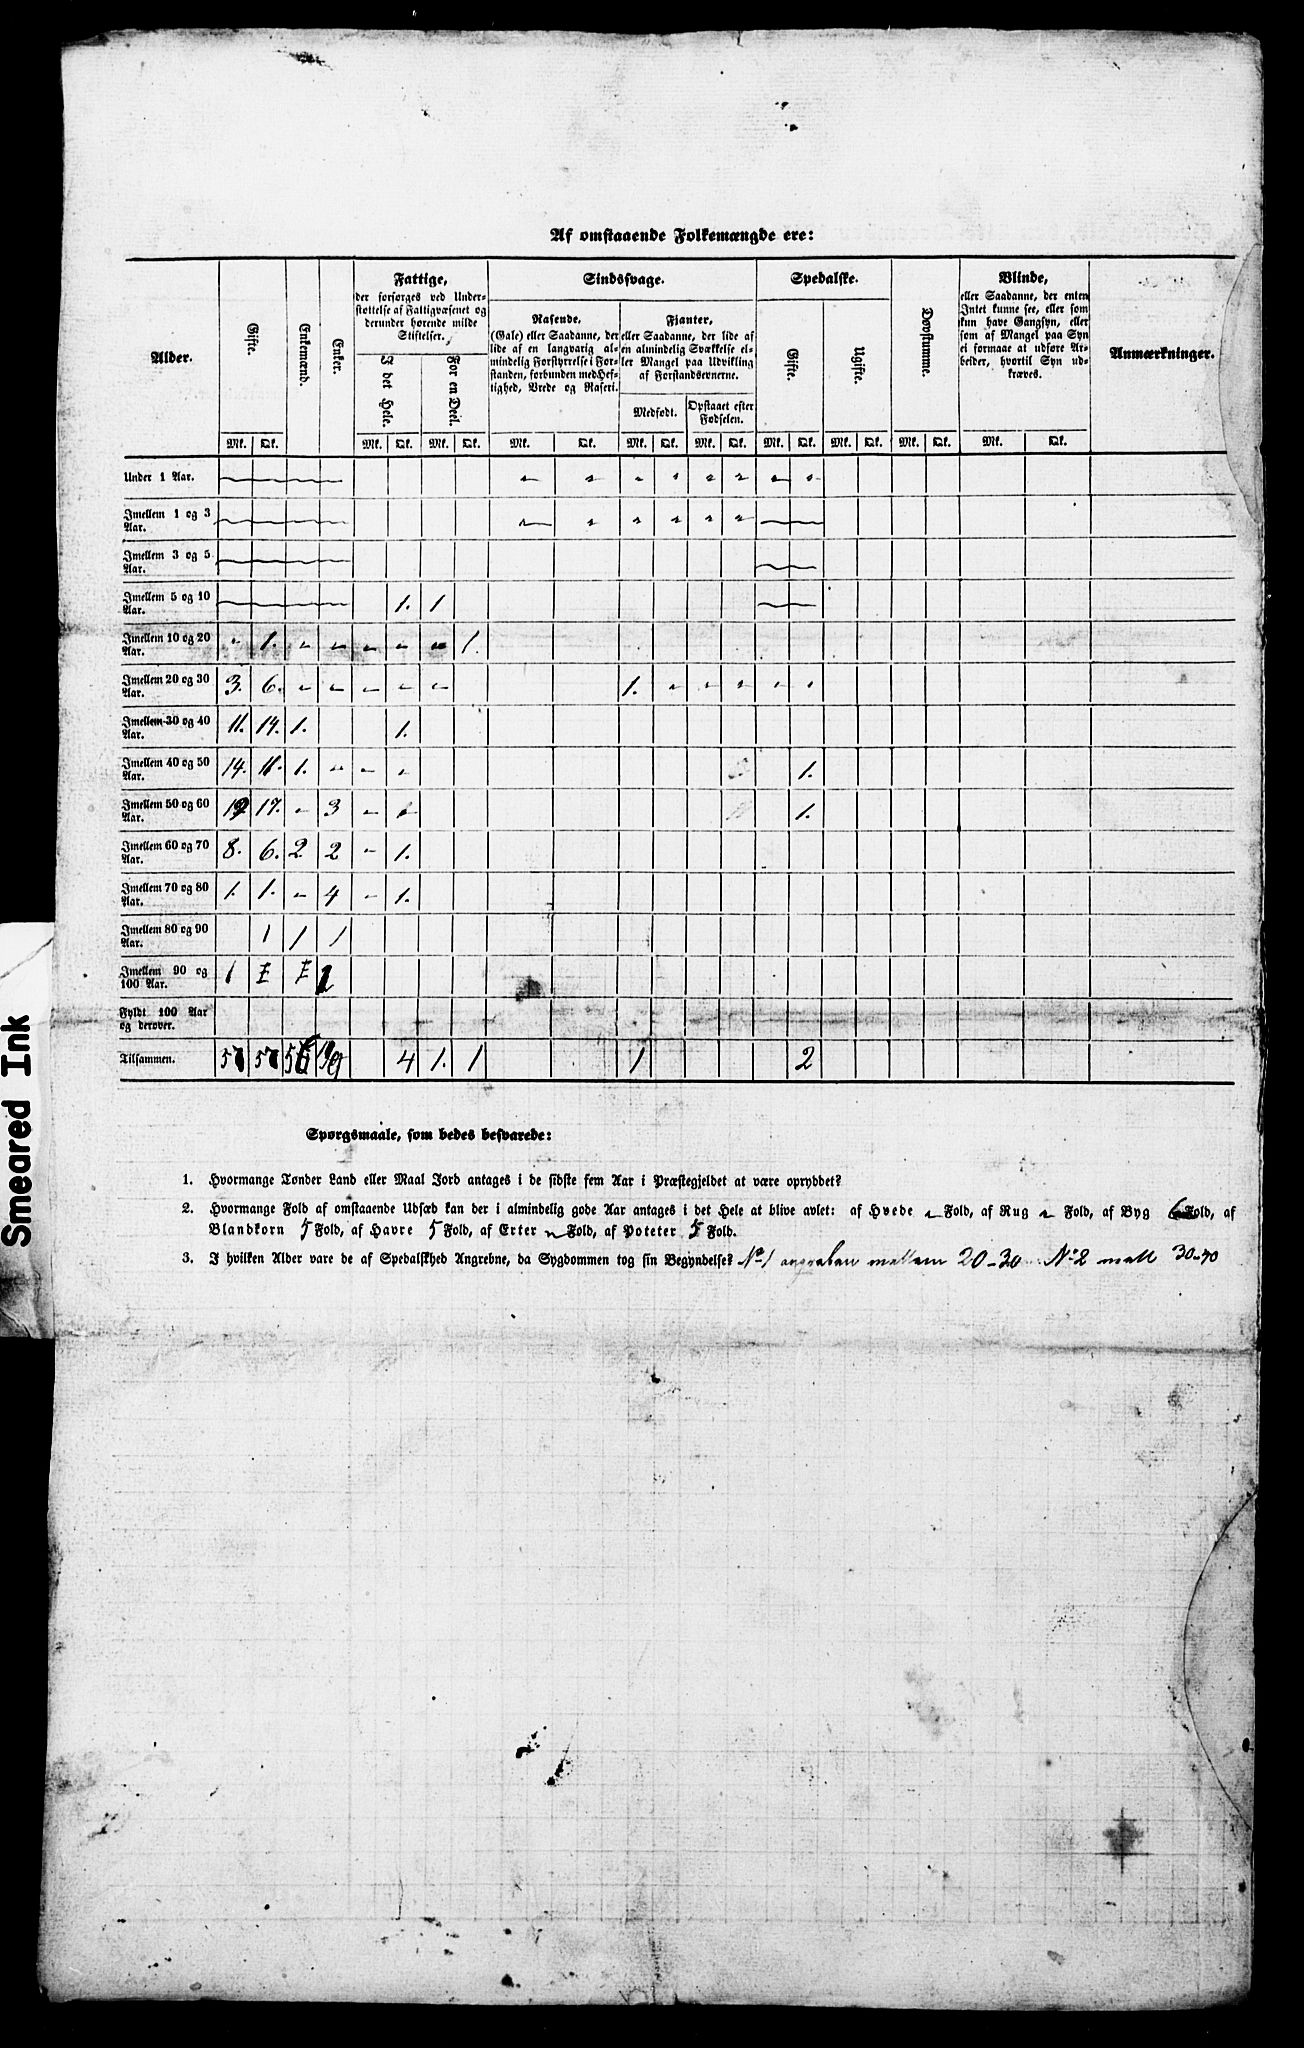 Af omstaaende Folkemængde ere:
Alder.
Gifte.
Enkemænd.
Enker.
Fattige,
der forsørges ved Under-
støttelse af Fattigvæsenet og
derunder hørende milde
Stiftelser.
I det Hele.
For en Deel.
Sindssvage.
Rasende,
(Gale) eller Saadanne, der
lide af en langvarig al-
mindelig Forstyrrelse i For-
standen, forbunden med Hef-
tighed, Vrede og Raseri.
Fjanter,
eller Saadanne, der lide af
en almindelig Svækkelse el-
ler Mangel paa Udvikling
af Forstandsevnerne.
Medfødt.
Opstaaet efter
Fødselen.
Spedalske.
Gifte.
Ugifte.
Døvstumme.
Blinde,
eller Saadanne, der enten
Intet kunne see, eller som
kun have Gangsyn, eller
som af Mangel paa Syn
ei formaae at udføre Ar-
beider, hvortil Syn ud-
kræves.
Anmærkninger.
Mk. Qk. Mk. Qk. Mk. Qk. Mk. Qk. Mk. Qk. Mk. Qk. Mk. Qk. Mk. Qk. Mk. Qk. Mk. Qk.
Under 1 Aar.
Imellem 1 og 3
Aar.
Imellem 3 og 5
Aar.
Imellem 5 og 10 1. 1
Aar.
Imellem 10 og 20 1. 1.
Aar.
Imellem 20 og 30 3. 6. 1.
Aar.
Imellem 30 og 40 11. 14. 1. 1.
Aar.
Imellem 40 og 50 14. 11. 1. 1.
Aar.
Imellem 50 og 60 17. 3 1.
Aar.
Imellem 60 og 70 8. 6. 2 2 1.
Aar.
Imellem 70 og 80 1. 1. 4 1.
Aar.
Imellem 80 og 90 1 1 1
Aar.
Imellem 90 og 1
100 Aar.
Fyldt 100 Aar
og derover.
Tilsammen. 4 1. 1 1 2
Spørgsmaale, som bedes besvarede:
1. Hvormange Tønder Land eller Maal Jord antages i de sidste fem Aar i Præstegjeldet at være opryddet?
2. Hvormange Fold af omstaaende Udsæd kan der i almindelig gode Aar antages i det Hele at blive avlet: af Hvede Fold, af Rug Fold, af Byg 6 Fold, af
Blandkorn 5 Fold, af Havre 5 Fold, af Erter Fold, af Poteter 5 Fold.
3. I hvilken Alder vare de af Spedalskhed Angrebne, da Sygdommen tog sin Begyndelse? No 1 angreben mellem 20-30 No 2 mell 30-40
Smeared Ink